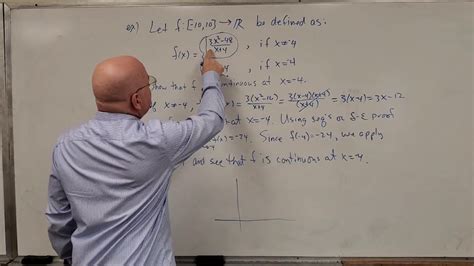 ex) Let f: [-10,10] → ℝ be defined as:
f(x) = 3x²-48 / x+4 , if x≠-4
-4 , if x=-4
show that f continuous at x=-4.
x≠-4, → = 3(x²-16)/x+4 = 3(x-4)(x+4)/(x+4) = 3(x-4) = 3x-12
at x=-4. Using seq's or δ-ε proof
= -24. Since f(-4)=-24, we apply
and see that f is continuous at x=-4.